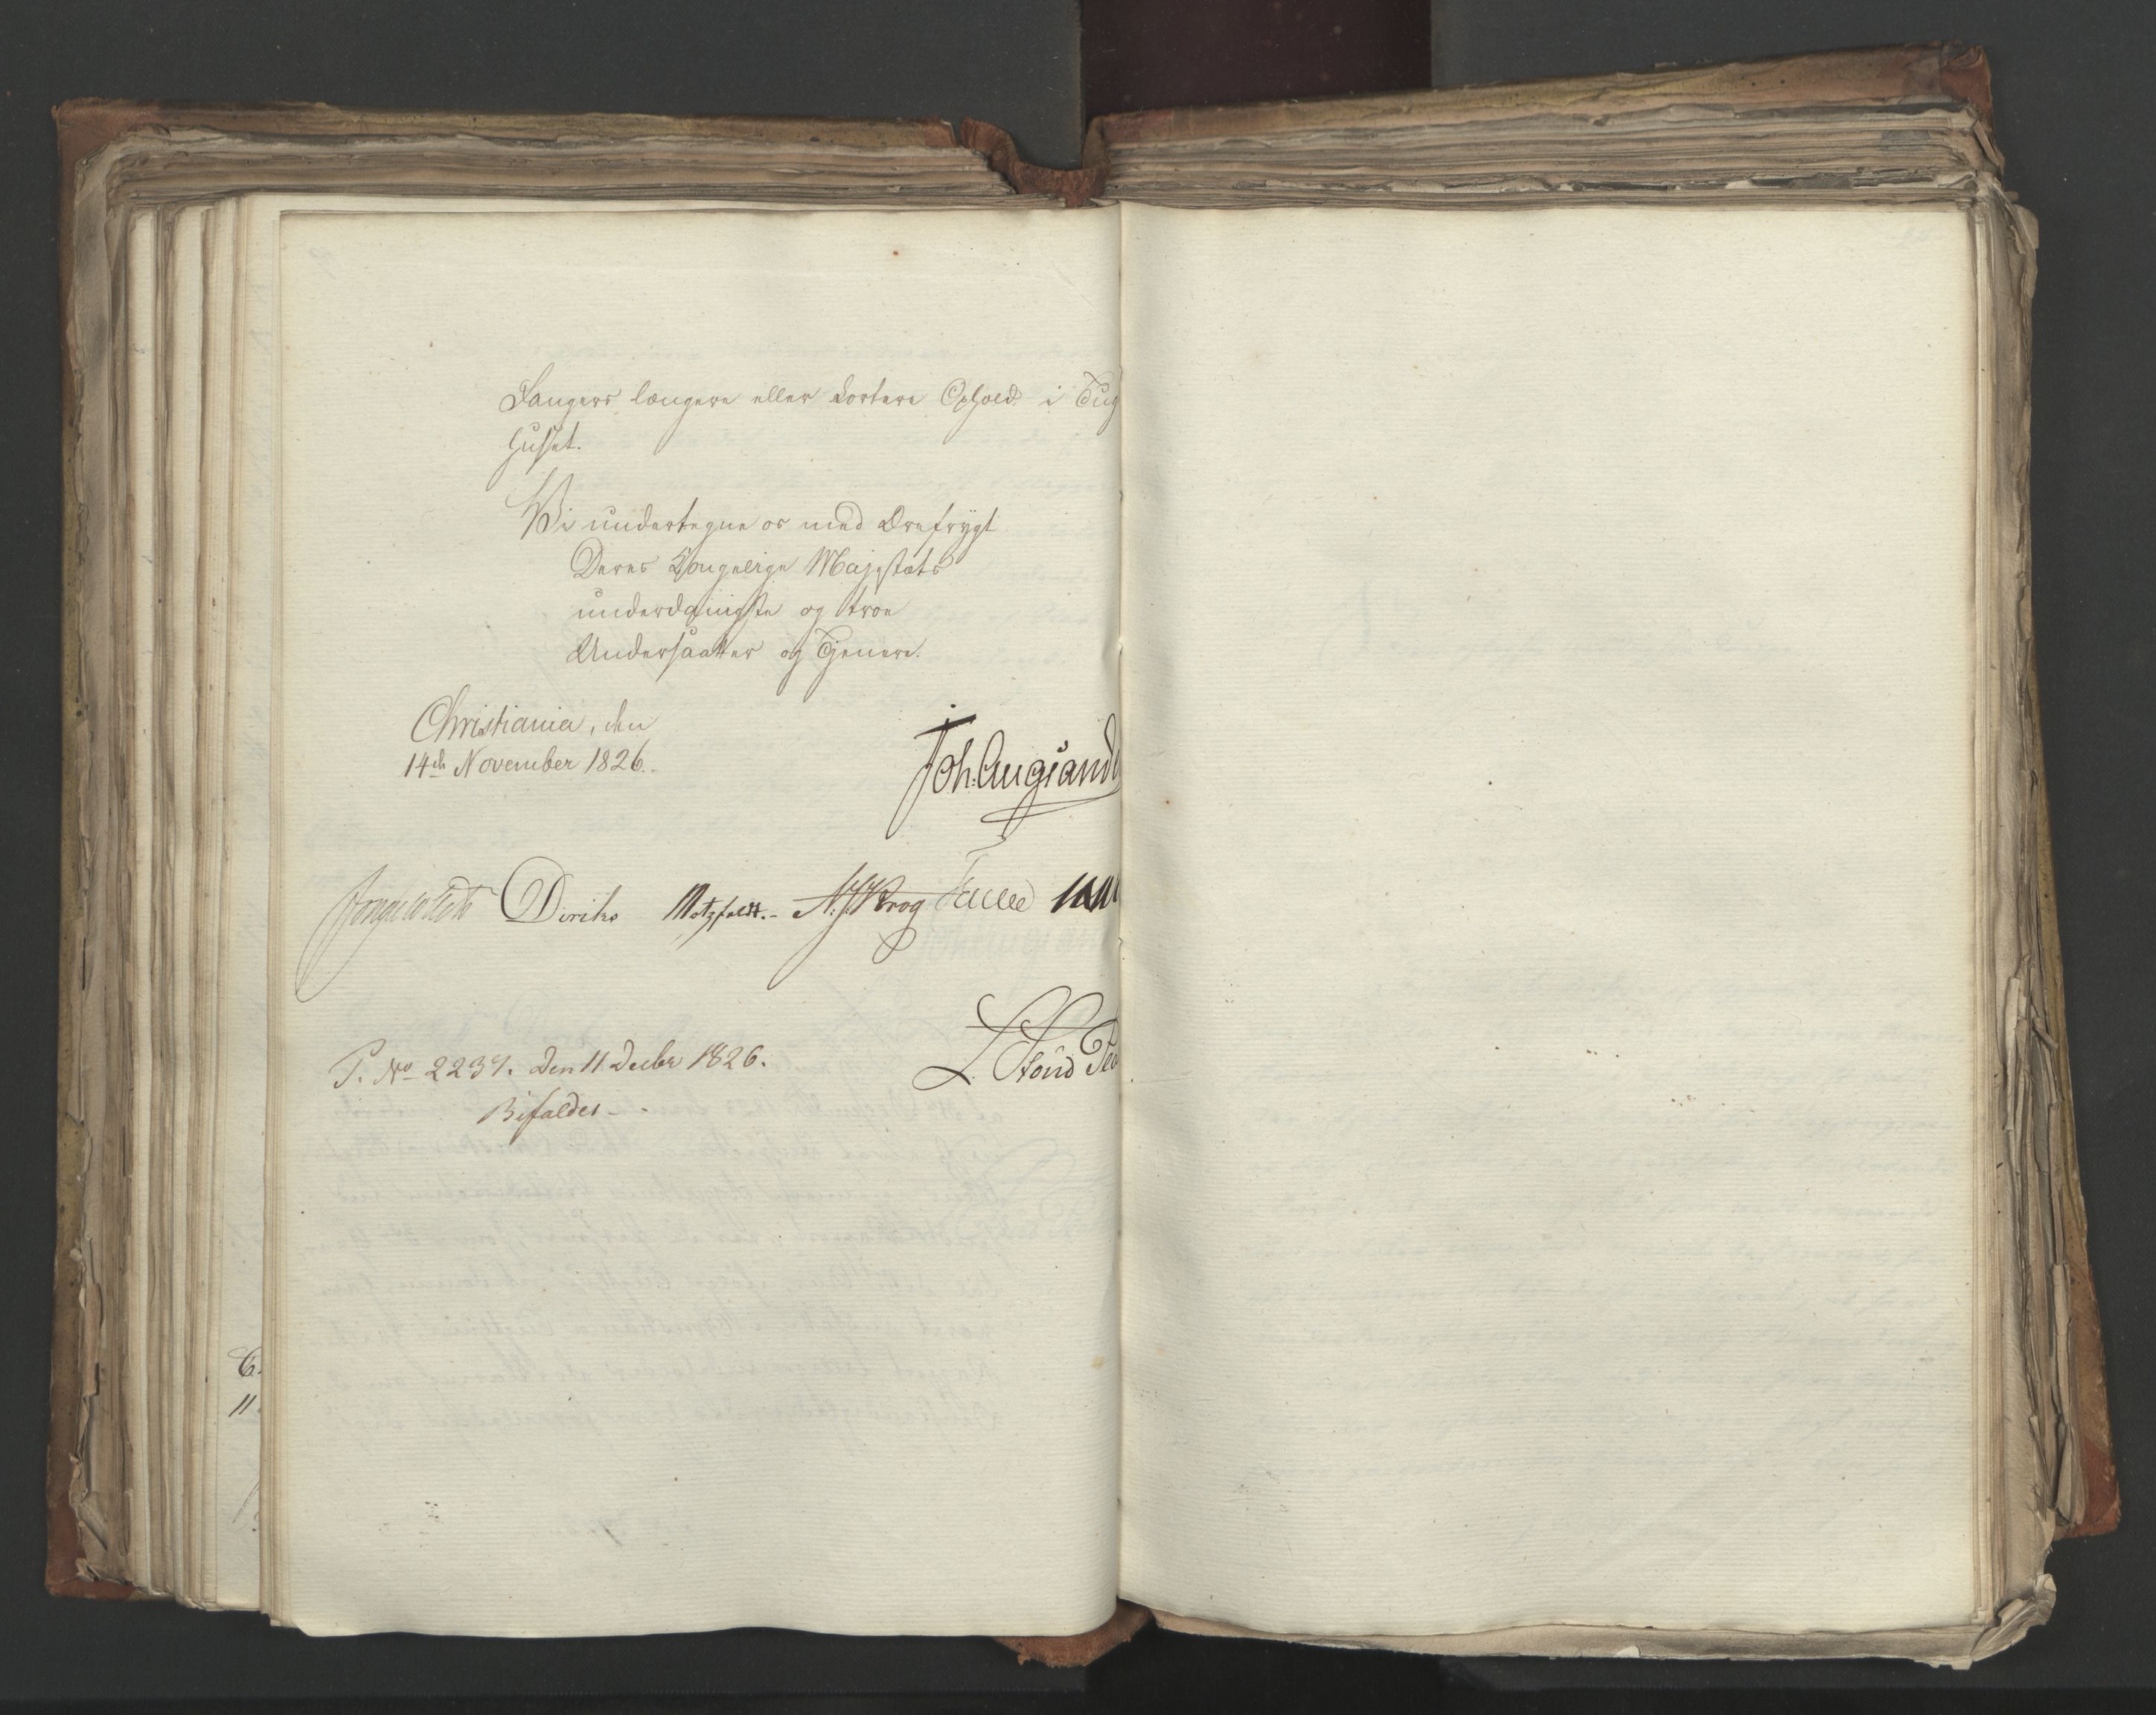 Fangers længere eller kortere Ophold i Tug
huset.
Vi undertegne os med Ærefrygt
Deres Kongelige Majestæts
underdanigste og troe
Undersaatter og Tjenere.
Christiania, den
14de November 1826.
Joh. Aug. Sand
Diriks Motzfeldt. N. J. Krog
L. Stoud Pla
P. No 2237. den 11 Decbr 1826.
Bifaldes